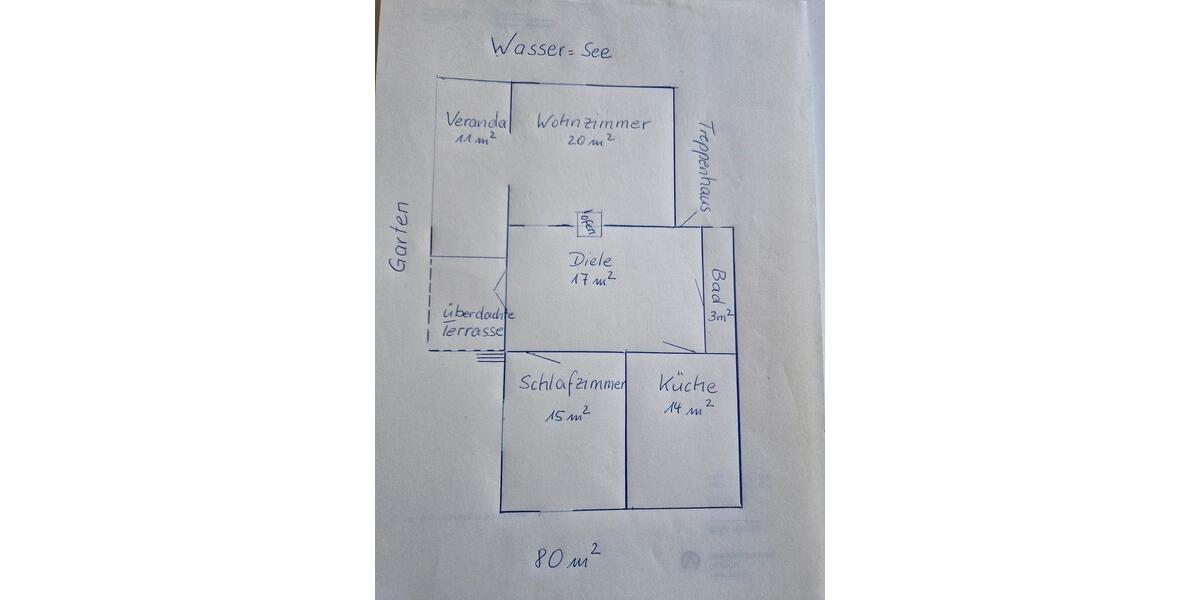 Wasser = See
Veranda
11 m²
Wohnzimmer
20 m²
Treppenhaus
Garten
Ofen
Diele
17 m²
Bad
3m²
Überdachte
Terrasse
Schlafzimmer
15 m²
Küche
14 m²
80 m²